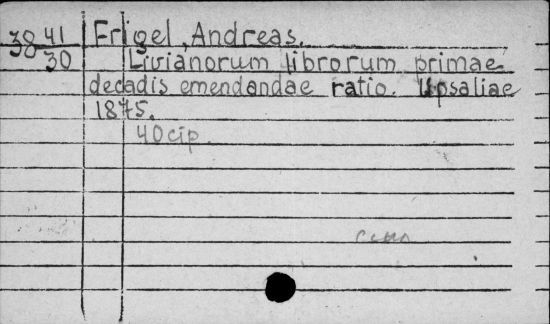 38 41 Frigel, Andreas.
30 Livianorum librorum primae
decadis emendandae ratio. Upsaliae
1875.
40cip.